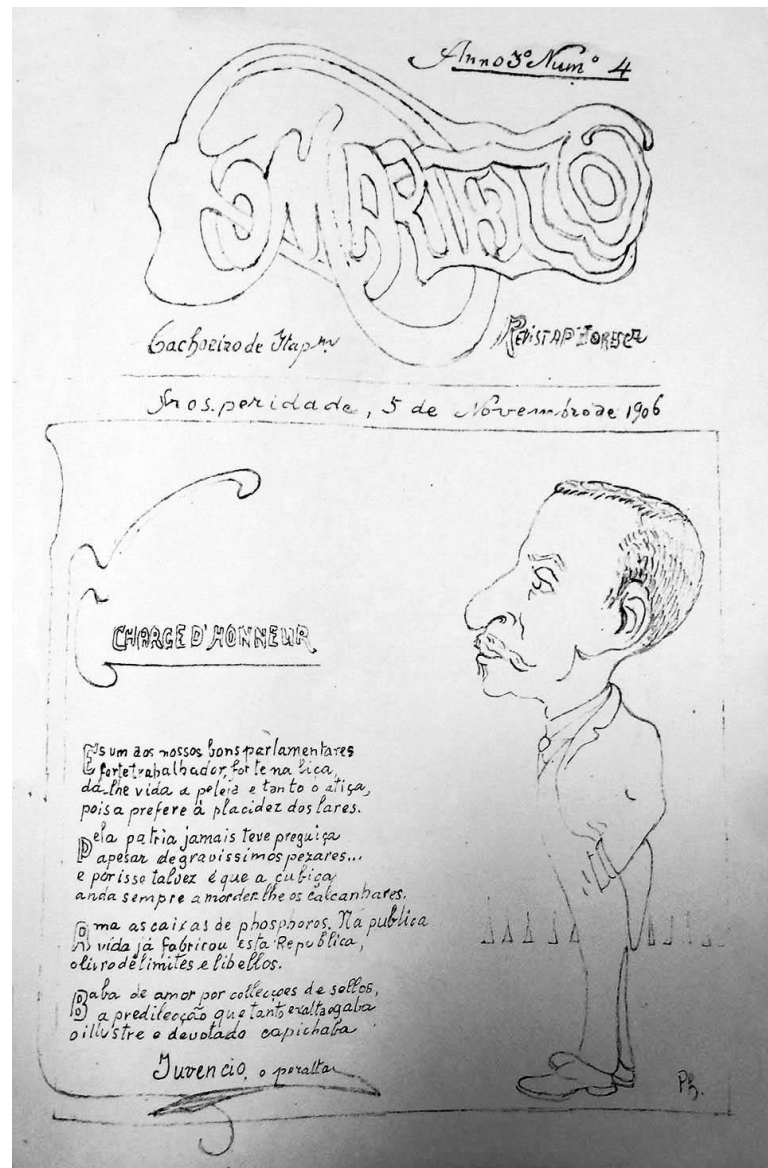 Anno 3º Num.º 4
O MARTELLO
Cachoeiro de Itapm
REVISTA PITORESCA
Prosperidade, 5 de Novembro de 1906
CHARGE D'HONNEUR
Es um dos nossos bons parlamentares
forte trabalhador, forte na liça,
dá-lhe vida a peleja e tanto o atiça,
pois a prefere á placidez dos lares.
Pela patria jamais teve preguiça
apesar de gravissimos pezares...
e por isse talvez é que a cubiça
anda sempre a morder-lhe os calcanhares.
Ama as caixas de phosphoros. Na publica
vida já fabricou esta Republica,
o livro de limites e libellos.
Baba de amor por collecções de sellos,
a predilecção que tanto exalta e gaba
o illustre e devotado capichaba
Juvencio, o peralta